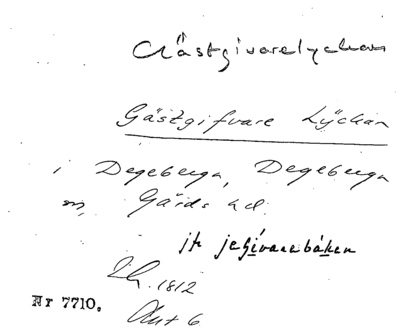 Gästgivarelyckan
Gästgifvare Lyckan
i Degeberga, Degeberga
sn, Gärds hd.
jfr jeʃivarebáken
Lh. 1812
Akt 6
Nr 7710.